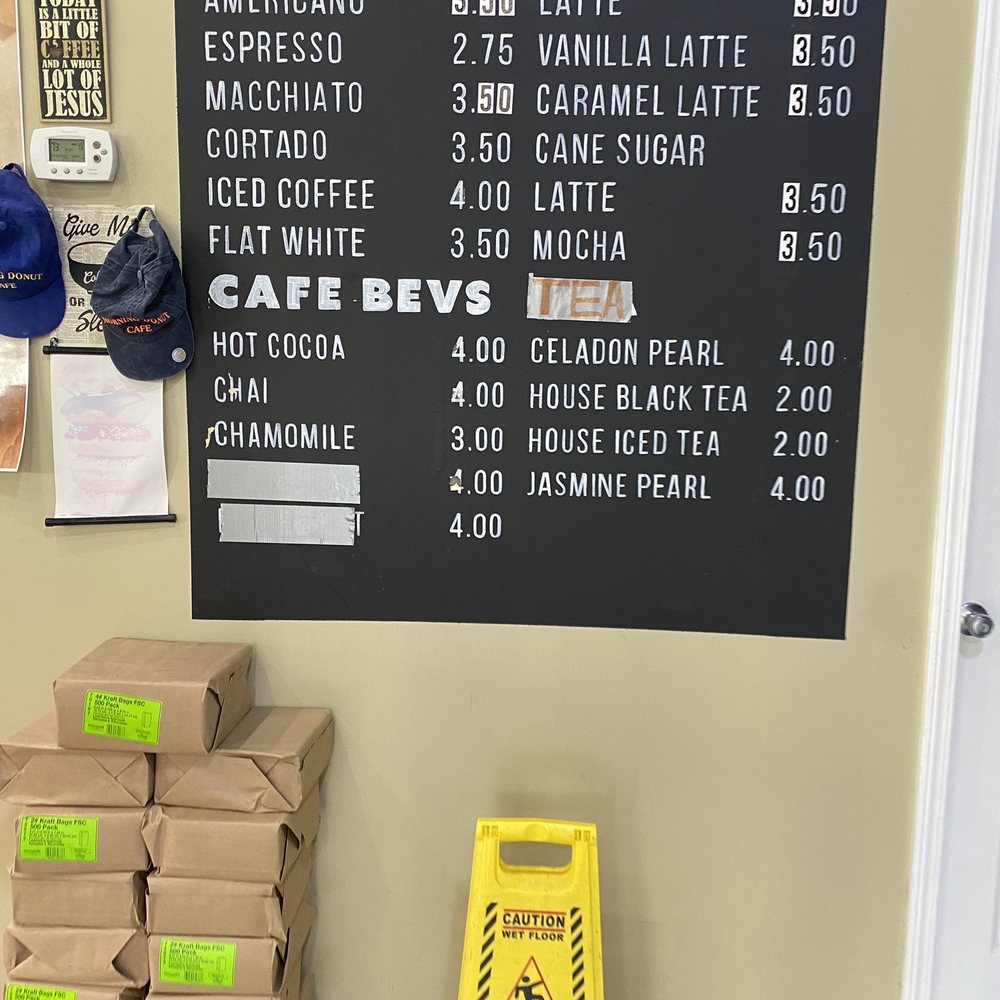 TODAY
IS A LITTLE
BIT OF
COFFEE
AND A WHOLE
LOT OF
JESUS
Honeywell
Give Me
OR
DONUT
MORNING DONUT
CAFE
AMERICANO 3.50
ESPRESSO 2.75
MACCHIATO 3.50
CORTADO 3.50
ICED COFFEE 4.00
FLAT WHITE 3.50
LATTE 3.50
VANILLA LATTE 3.50
CARAMEL LATTE 3.50
CANE SUGAR
LATTE 3.50
MOCHA 3.50
CAFE BEVS
HOT COCOA 4.00
CHAI 4.00
CHAMOMILE 3.00
4.00
T 4.00
TEA
CELADON PEARL 4.00
HOUSE BLACK TEA 2.00
HOUSE ICED TEA 2.00
JASMINE PEARL 4.00
4# Kraft Bags FSC
500 Pack
2# Kraft Bags FSC
500 Pack
2# Kraft Bags FSC
500 Pack
Kraft Bags FSC
CAUTION
WET FLOOR